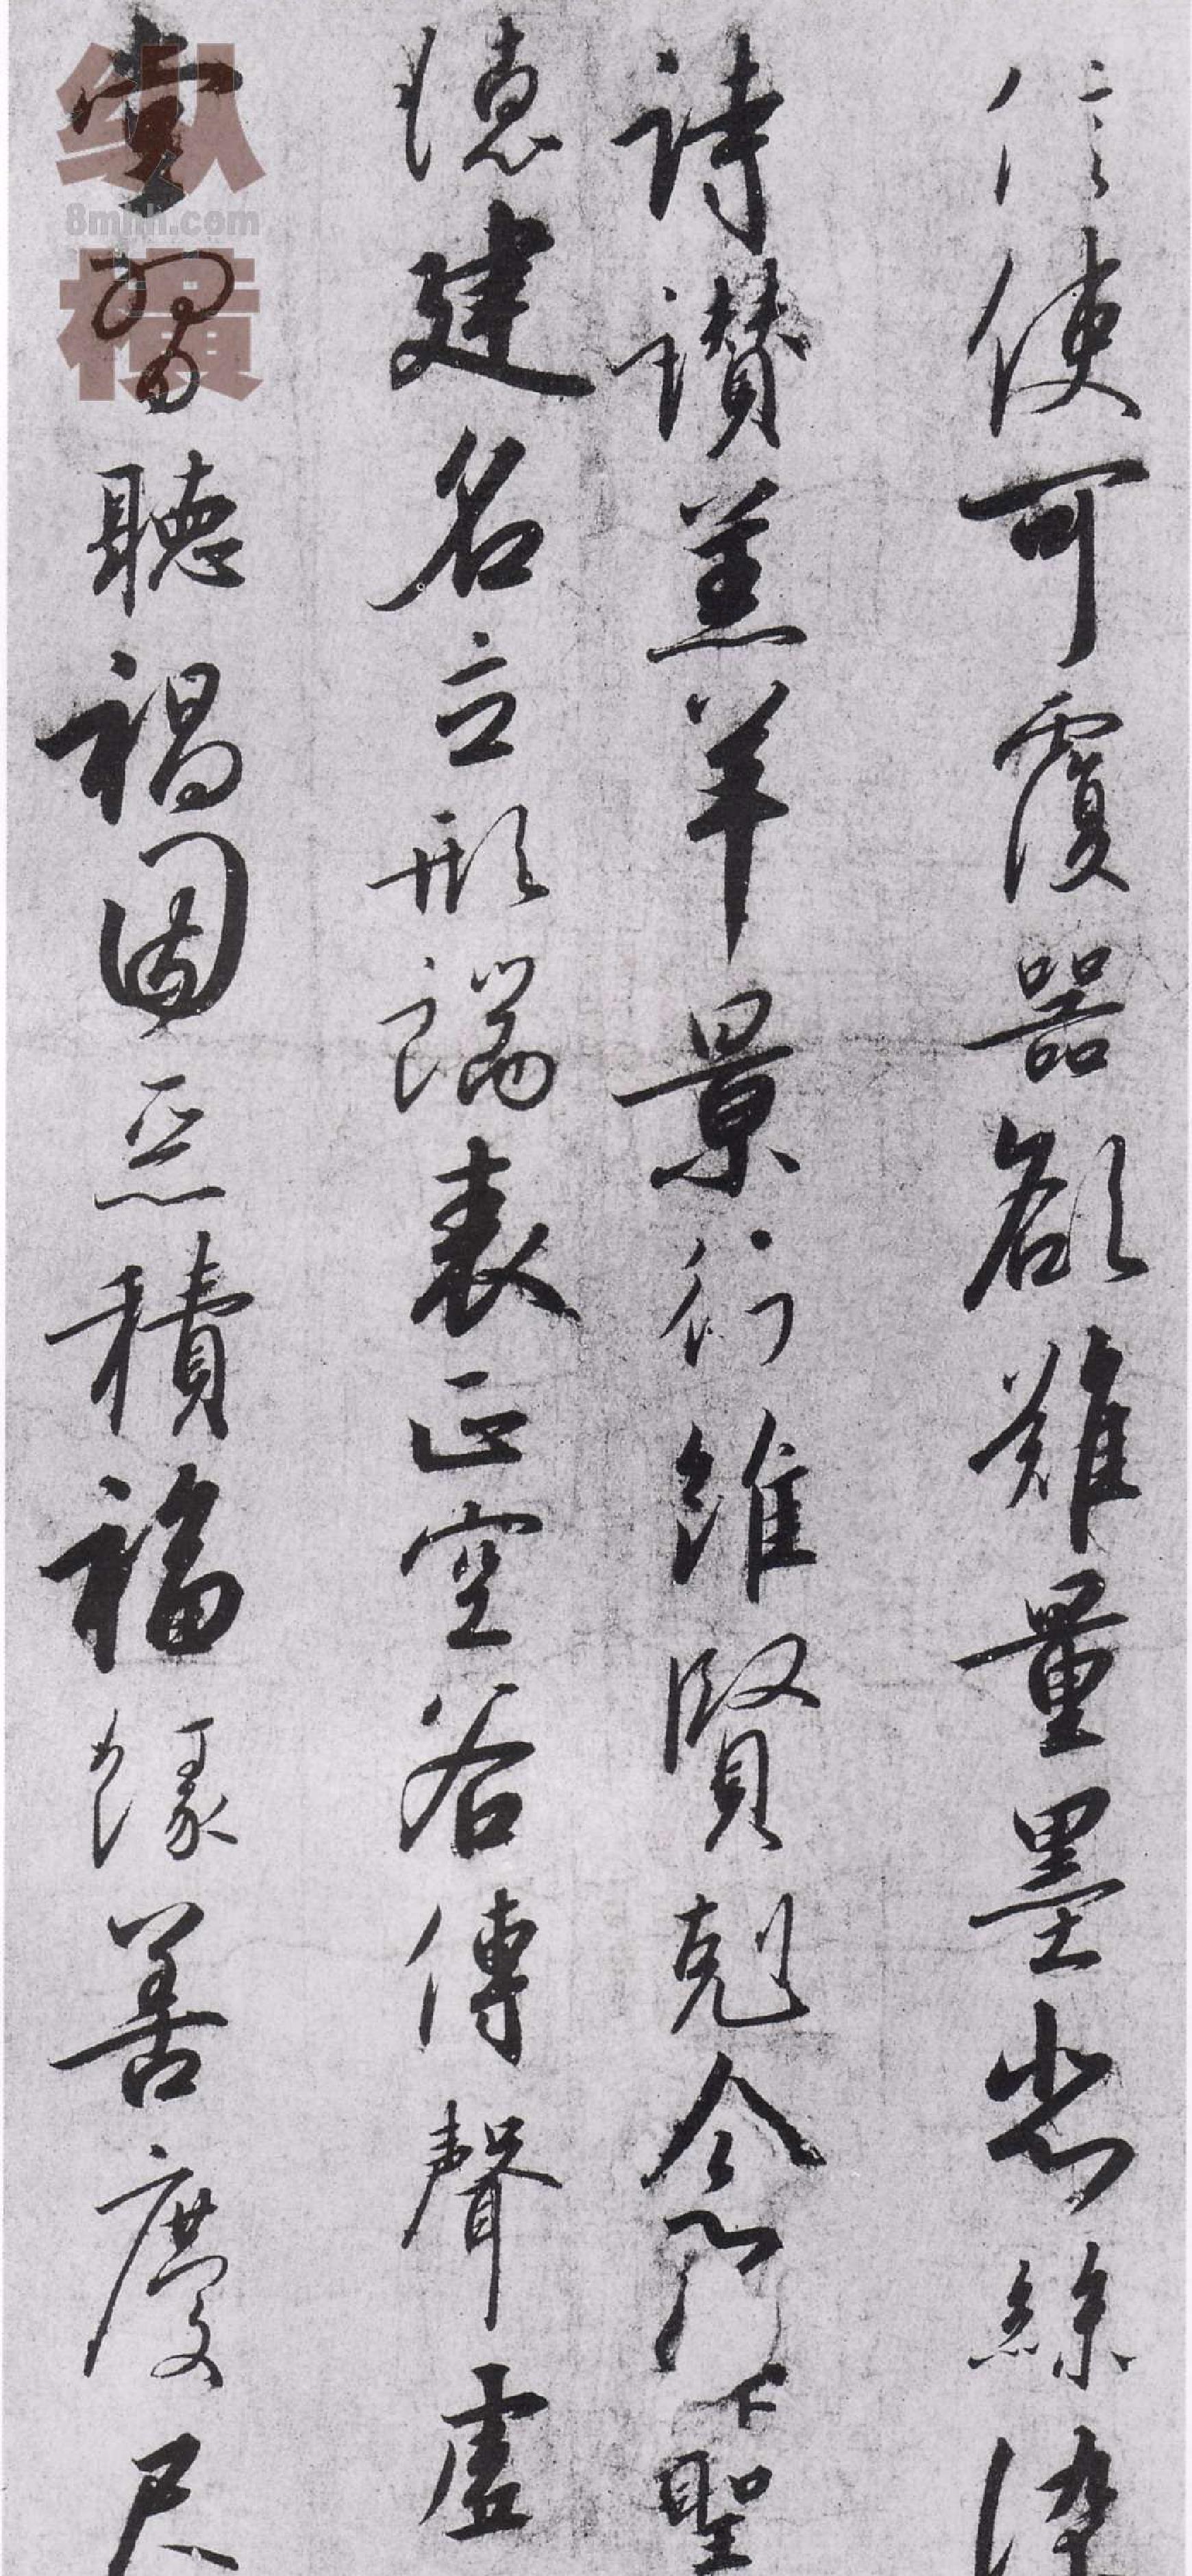 信使可覆器欲難量墨悲絲染
詩讚羔羊景行維賢剋念作聖
德建名立形端表正空谷傳聲虛
堂習聽禍因惡積福緣善慶尺
纵
横